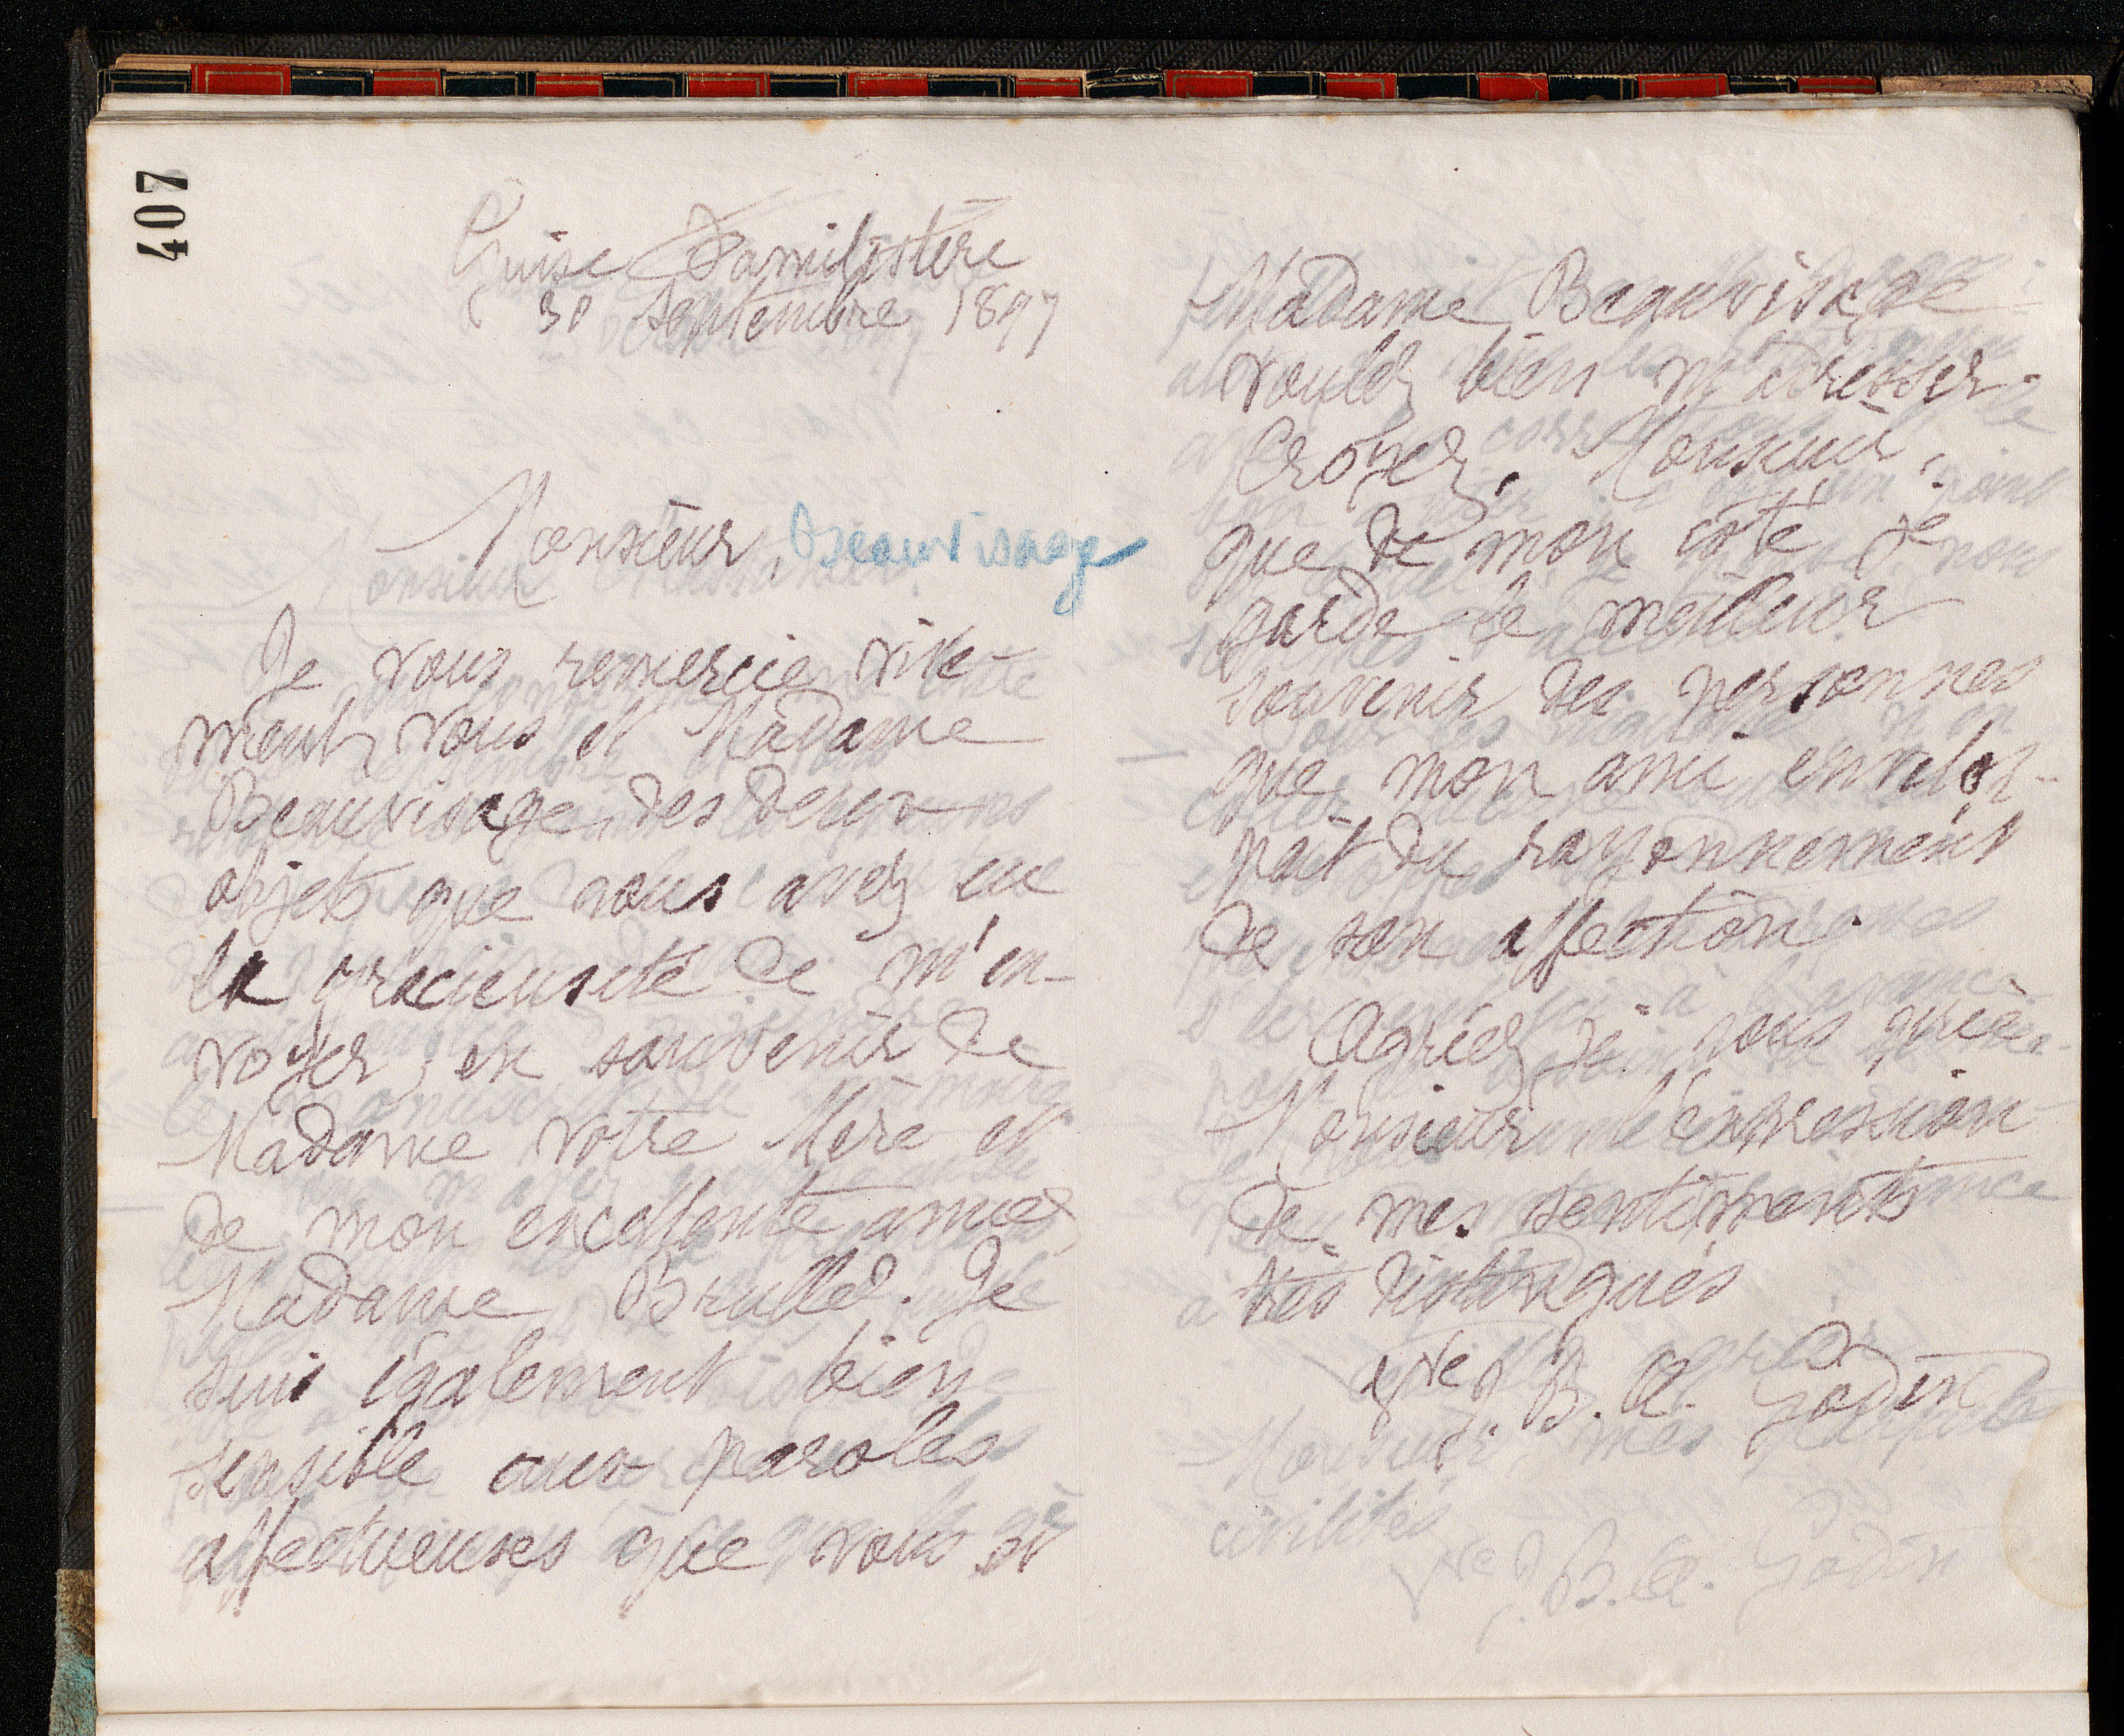 407
Guise Familistère
30 septembre 1897
Monsieur, Beauvisage
Je vous remercie vive-
ment, vous et Madame
Beauvisage, des deux
objets que vous avez eu
la gracieuseté de m'en-
voyer, en souvenir de
Madame votre Mère et
de mon excellente amie
Madame Brullé. Je
suis également bien
sensible aux paroles
affectueuses que vous et
Madame Beauvisage
voulez bien m'adresser.
Croyez, Monsieur,
que de mon côté je
garde le meilleur
souvenir des personnes
que mon amie envelop-
pait du rayonnement
de son affection.
Agréez, je vous prie,
Monsieur, l'expression
de mes sentiments
très distingués
Vve J. B. A. Godin
civilités
Vve J. B. A. Godin